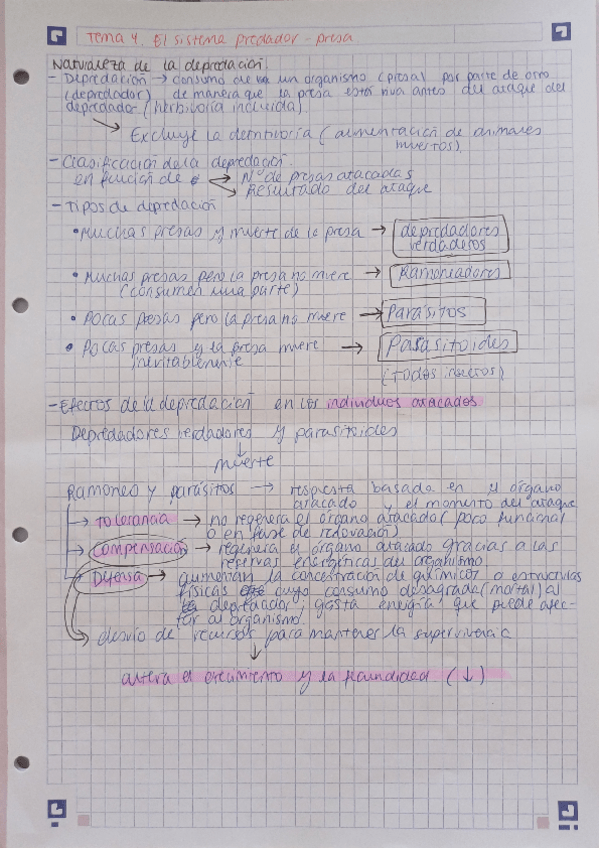 Tema 4. El sistema predador - presa
Naturaleza de la depredación.
- Depredación → consumo de un organismo (presa) por parte de otro
(depredador) de manera que la presa está viva antes del ataque del
depredador (herbivoría incluida)
Excluye la detritivoría (alimentación de animales
muertos)
- Clasificación de la depredación.
en función de → Nº de presas atacadas
→ Resultado del ataque
- Tipos de depredación
• Muchas presas y muerte de la presa → depredadores
verdaderos
• Muchas presas pero la presa no muere → Ramoneadores
(consumen una parte)
• Pocas presas pero la presa no muere → Parásitos
• Pocas presas y la presa muere → Parasitoides
inevitablemente
(todos insectos)
- Efectos de la depredación en los individuos atacados
Depredadores verdadores y parasitoides
↓
muerte
Ramoneo y parásitos → respuesta basada en el órgano
atacado y el momento del ataque
→ tolerancia → no regenera el órgano atacado (poco funcional
o en fase de renovación)
→ Compensación → regenera el órgano atacado gracias a las
reservas energéticas del organismo
→ Defensa → aumentan la concentración de químicos o estructuras
físicas cuyo consumo desagrada (mortal) al
depredador; gasta energía que puede afec-
tar al organismo.
desvío de recursos para mantener la supervivencia
↓
altera el crecimiento y la fecundidad (↓)